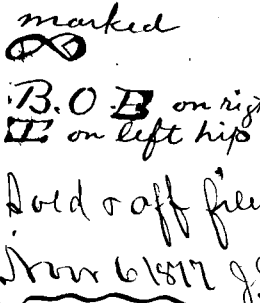 marked
B.O.B on rig
I on left hip
Sold & aff file
Nov 6 1877 J.